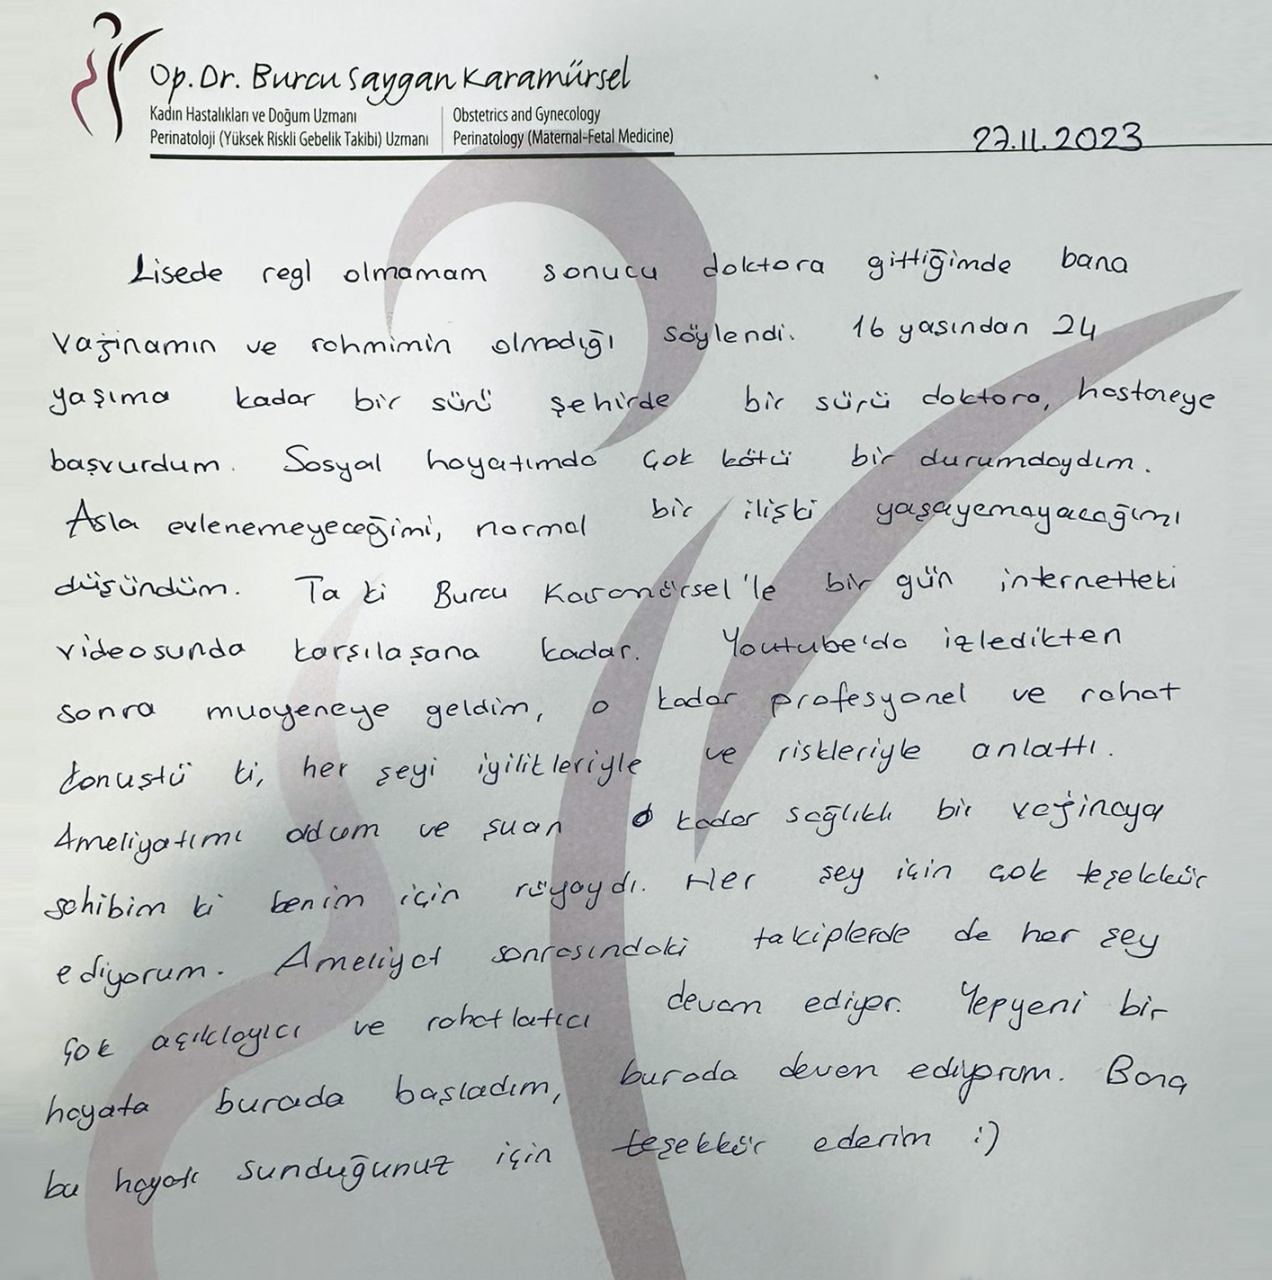 Op. Dr. Burcu Saygan Karamürsel
Kadın Hastalıkları ve Doğum Uzmanı
Perinatoloji (Yüksek Riskli Gebelik Takibi) Uzmanı
Obstetrics and Gynecology
Perinatology (Maternal-Fetal Medicine)
27.11.2023
Lisede regl olmamam sonucu doktora gittiğimde bana
vajinamın ve rahmimin olmadığı söylendi. 16 yasından 24
yaşıma kadar bir sürü şehirde bir sürü doktora, hastaneye
başvurdum. Sosyal hayatımda çok kötü bir durumdaydım.
Asla evlenemeyeceğimi, normal bir ilişki yaşayamayacağımı
düşündüm. Ta ki Burcu Karamürsel'le bir gün internetteki
videosunda karşılaşana kadar. Youtube'da izledikten
sonra muayeneye geldim, o kadar profesyonel ve rahat
konuştu ki, her şeyi iyilikleriyle ve riskleriyle anlattı.
Ameliyatımı oldum ve şuan o kadar sağlıklı bir vajinaya
sahibim ki benim için rüyaydı. Her şey için çok teşekkür
ediyorum. Ameliyat sonrasındaki takiplerde de her şey
çok açıklayıcı ve rahatlatıcı devam ediyor. Yepyeni bir
hayata burada başladım, burada devam ediyorum. Bana
bu hayatı sunduğunuz için teşekkür ederim :)